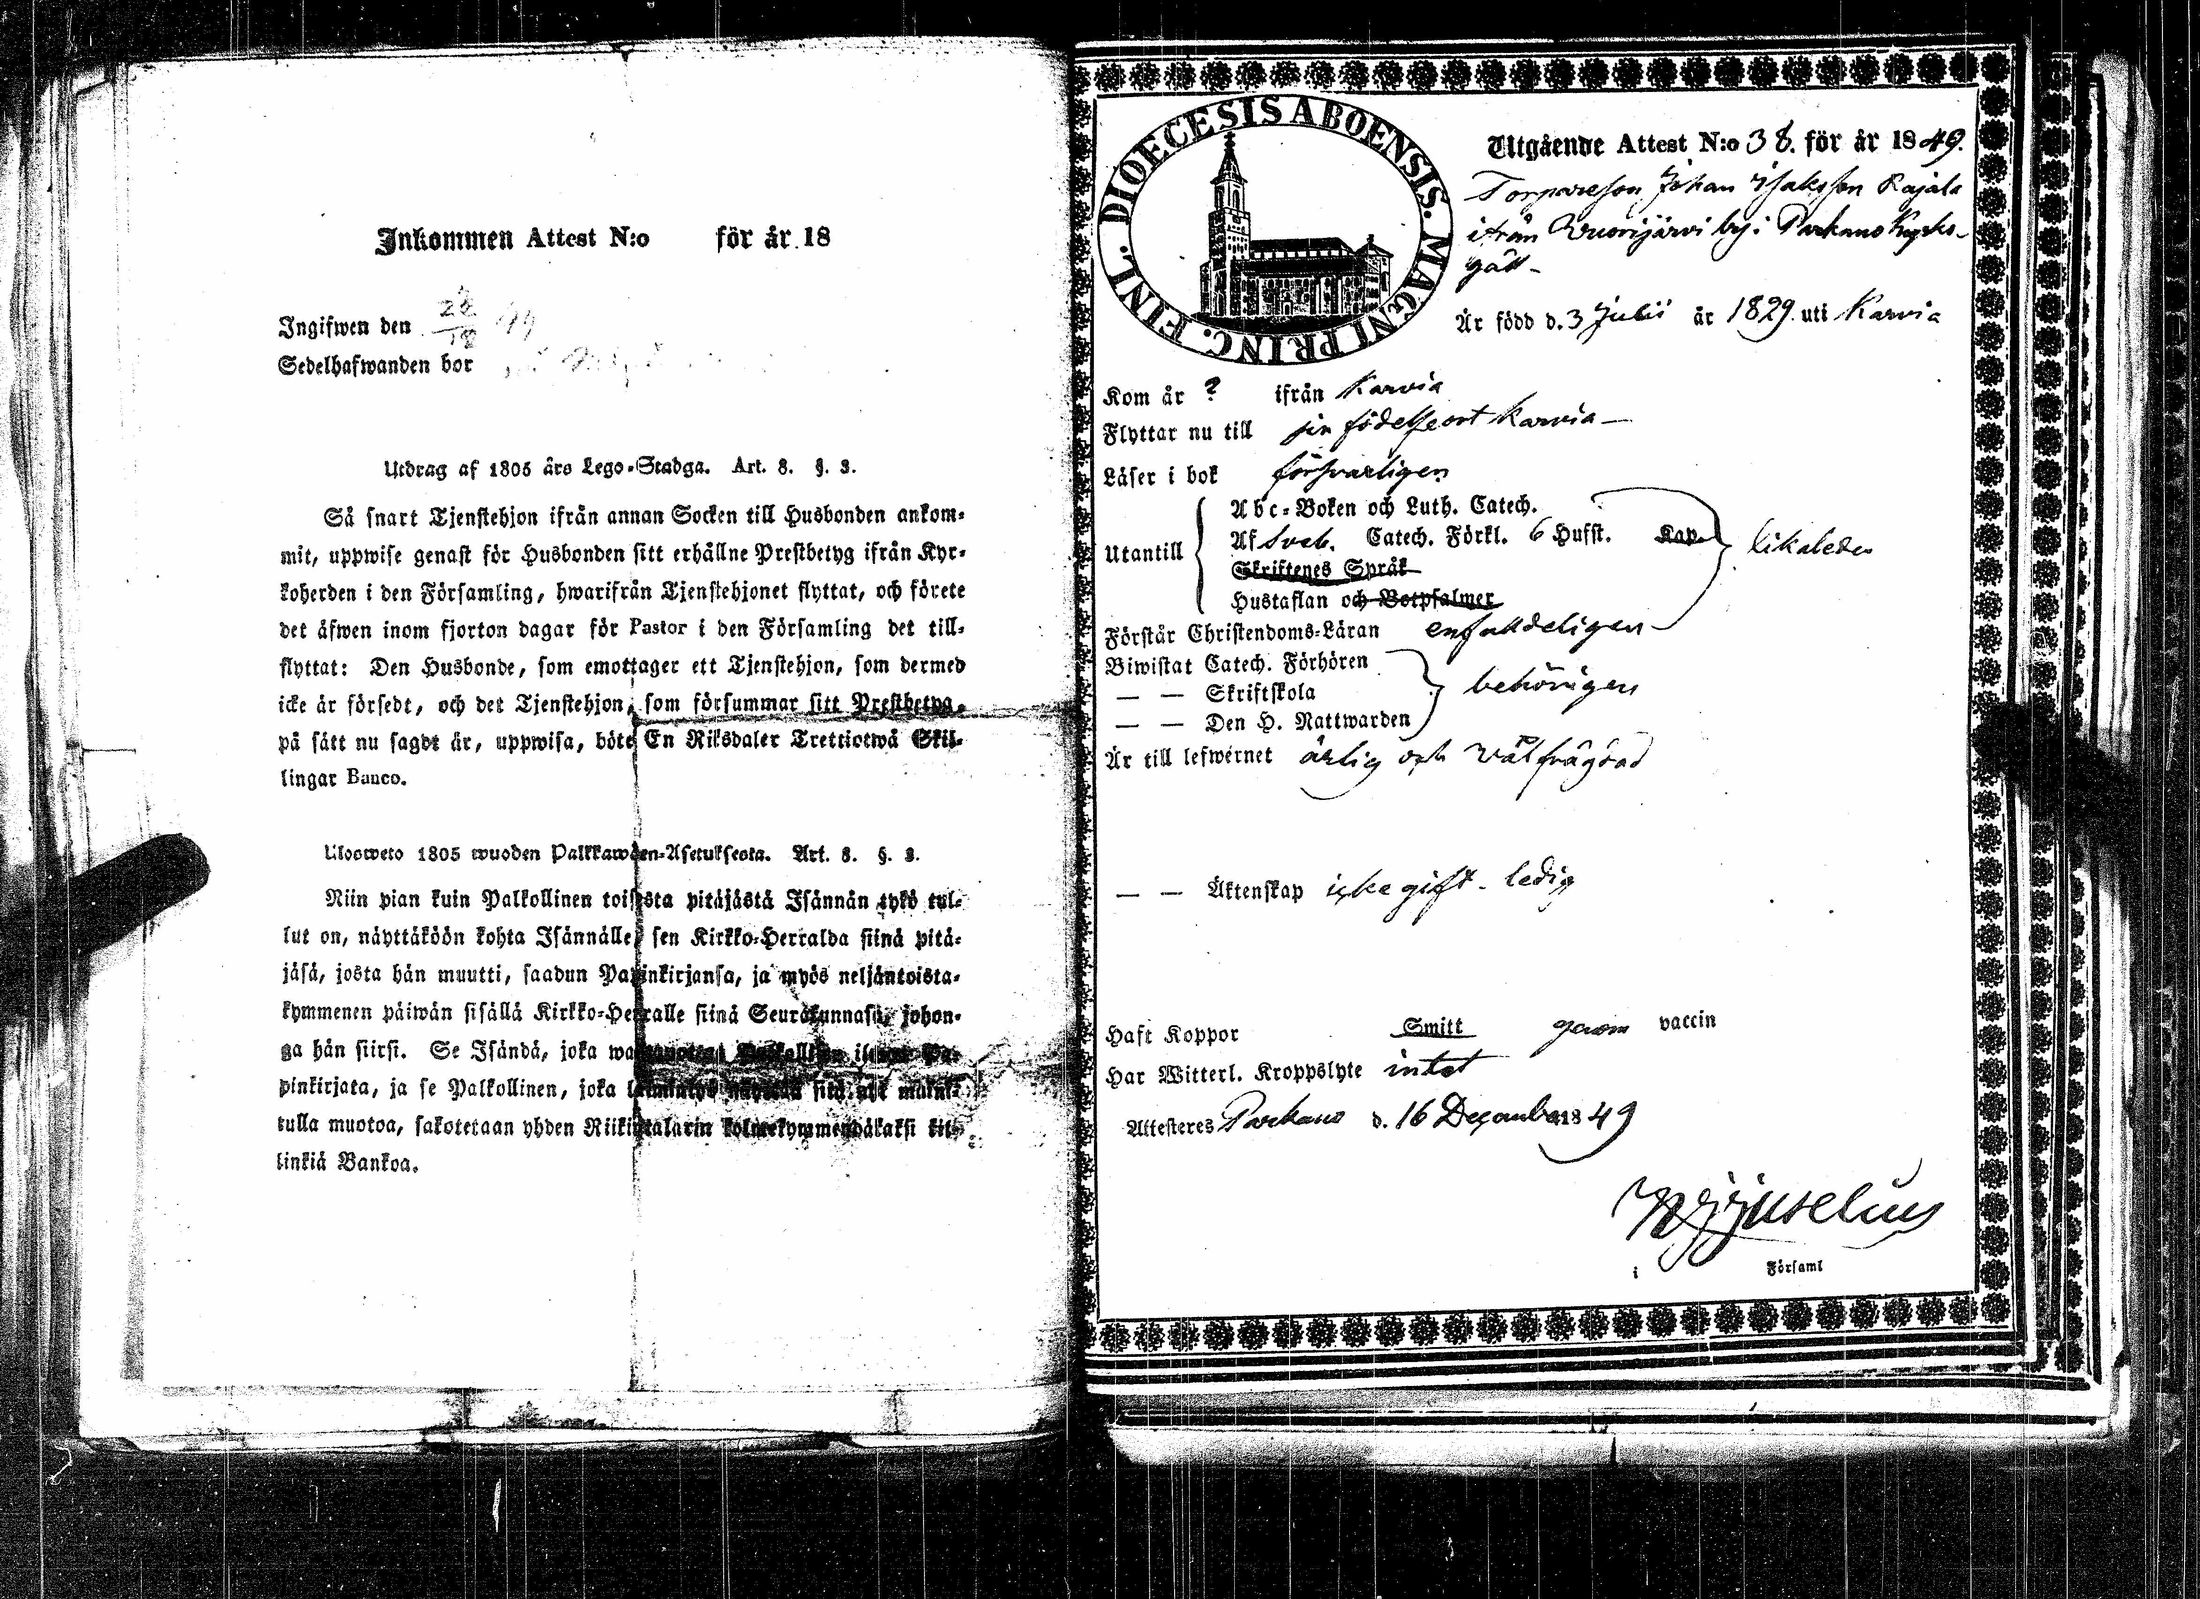 Inkommen Attest N:o för år 18
Ingifwen den
Sedelhafwanden bor
Utdrag af 1805 års Lego-Stadga. Art. 8. §. 3.
Så snart Tjenstehjon ifrån annan Socken till Husbonden ankom-
mit, uppwise genast för Husbonden sitt erhållne Prestbetyg ifrån Kyr-
koherden i den Församling, hwarifrån Tjenstehjonet flyttat, och förete
det äfwen inom fjorton dagar för Pastor i den Församling det till-
flyttat: Den Husbonde, som emottager ett Tjenstehjon, som dermed
icke är försedt, och det Tjenstehjon, som försummar sitt Prestbetyg,
på sätt nu sagdt är, uppwisa, böte En Riksdaler Trettiotwå Skil-
lingar Banco.
Ulosweto 1805 wuoden Palkkawäen-Asetuksesta. Art. 8. §. 3.
Niin pian kuin Palkollinen toisesta pitäjästä Isännän tykö tul-
lut on, näyttäköön kohta Isännälle, sen Kirkko-Herralda siinä pitä-
jäsä, josta hän muutti, saadun Papinkirjansa, ja myös neljäntoista-
kymmenen päiwän sisällä Kirkko-Herralle siinä Seurakunnasa, johon-
ga hän siirsi. Se Isändä, joka
pinkirjata, ja se Palkollinen, joka
tulla muotoa, sakotetaan yhden Riikintalarin kolmekymmendäkaksi kil-
linkiä Bankoa.
DIOECESIS ABOENSIS. MAGNI PRINC. FINL.
Utgående Attest N:o 38. för år 1849.
Torparesson Johan Isaksson Rajala
ifrån Vuorijärvi by i Parkano Kyrko-
gäll -
Är född d. 3 Julii år 1829. uti Karvia
Kom år ? ifrån Karvia
Flyttar nu till sin födelseort Karvia —
Läser i bok försvarligen
Utantill
Abc-Boken och Luth. Catech.
Af Sveb. Catech. Förkl. 6 Hufst. Kap.
Skriftenes Språk
Hustaflan och Botpsalmer
likaledes
Förstår Christendoms-Läran enfaldeligen
Biwistat Catech. Förhören
— — Skriftskola
— — Den H. Nattwarden
behörigen
Är till lefwernet ärlig och välfrägdad
— — Äktenskap icke gift - ledig
Haft Koppor Smitt genom vaccin
Har Witterl. Kroppslyte intet
Attesteres Parkano d. 16 December 1849
i Församl